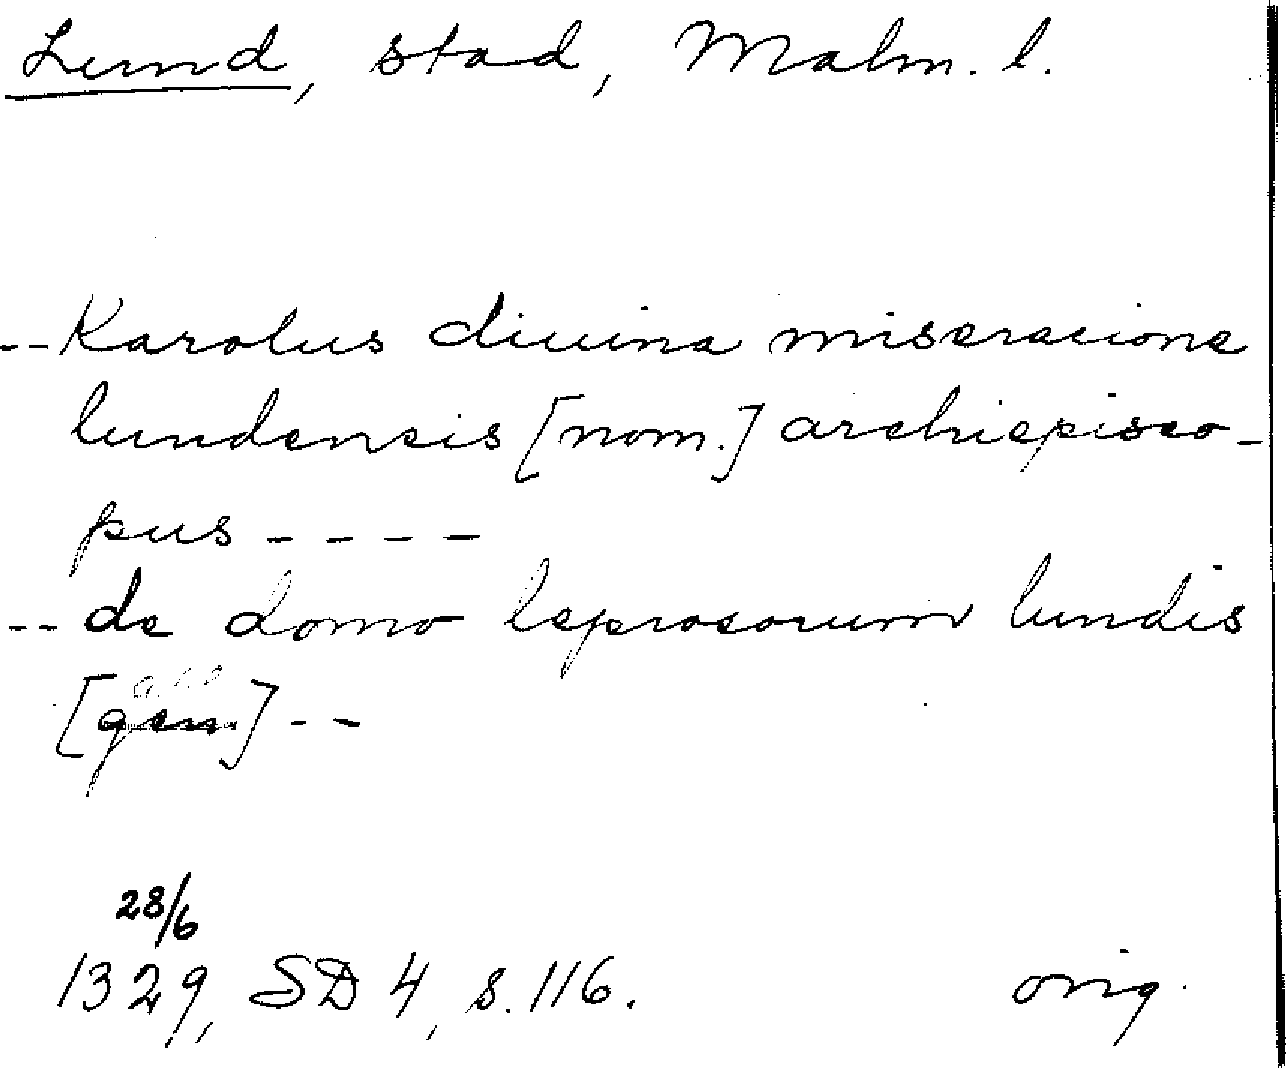 Lund, stad, Malm. l.
-- Karolus diuina miseracione
lundensis [nom.] archiepisco-
pus ----
-- de domo leprosorum lundis
[gen] --
28/6
1329, SD 4, s. 116.
orig.